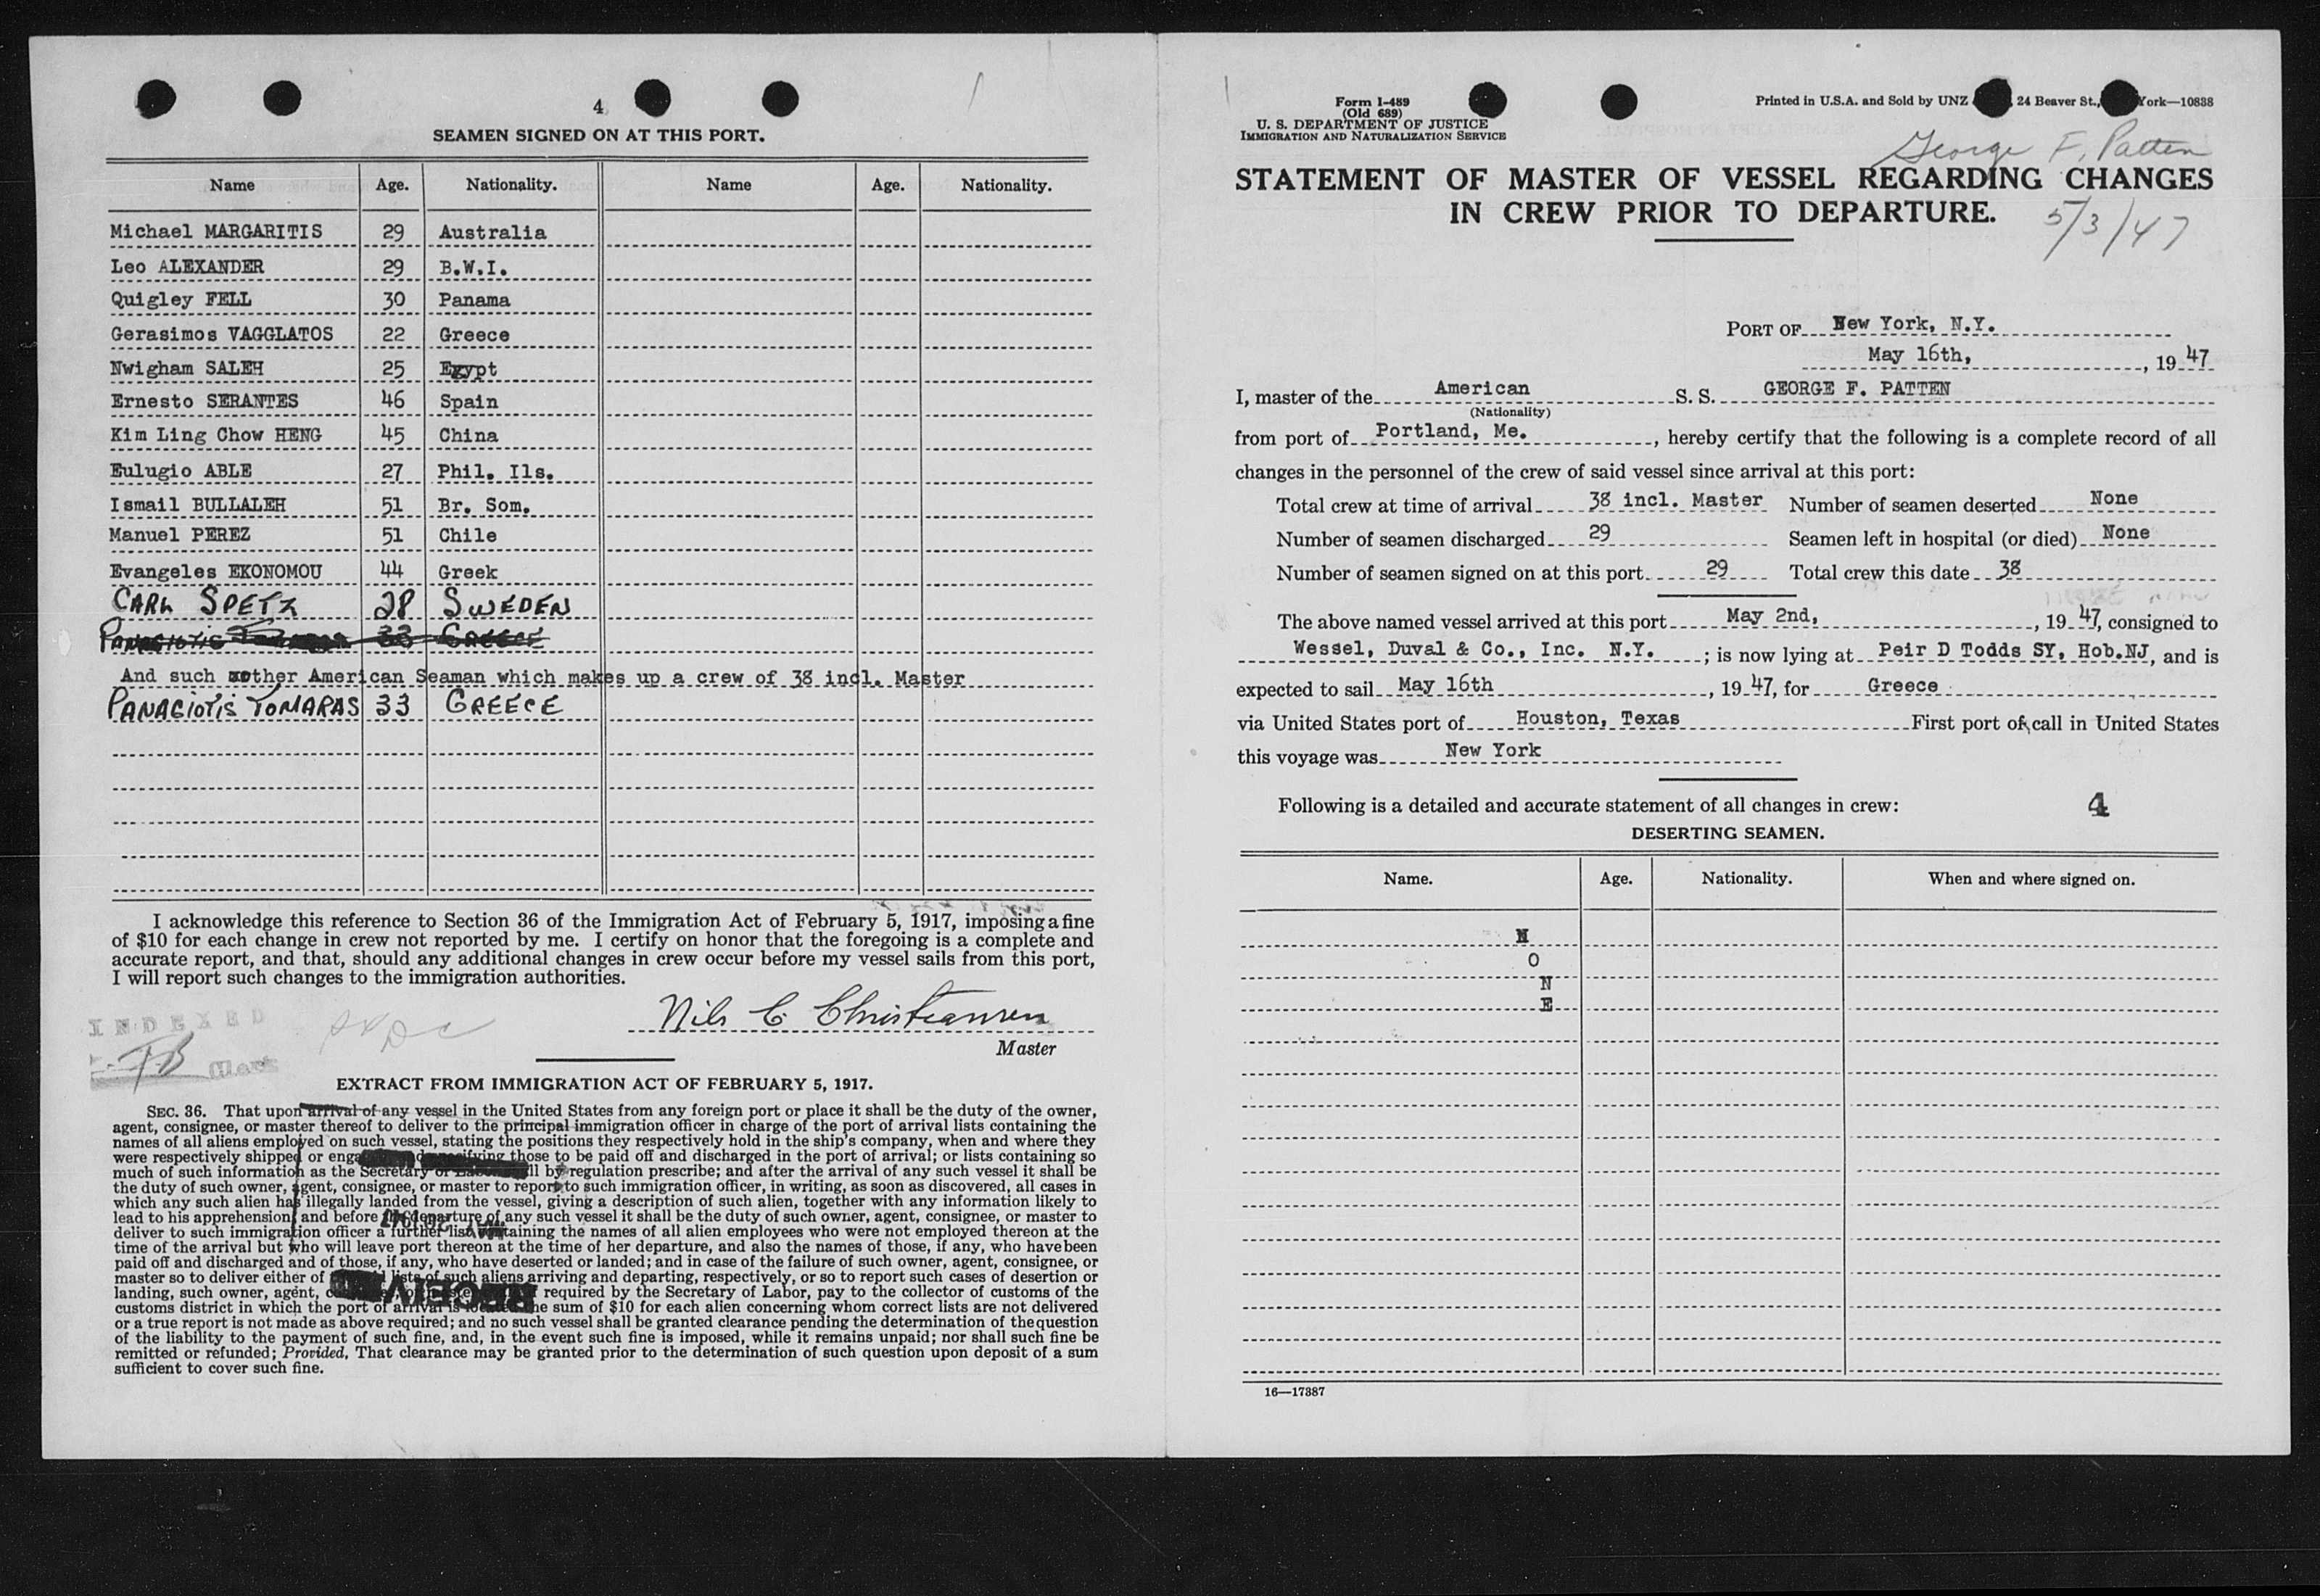 4
SEAMEN SIGNED ON AT THIS PORT.
Name Age. Nationality. Name Age. Nationality.
Michael MARGARITIS 29 Australia
Leo ALEXANDER 29 B.W.I.
Quigley FELL 30 Panama
Gerasimos VAGGLATOS 22 Greece
Nwigham SALEH 25 Egypt
Ernesto SERANTES 46 Spain
Kim Ling Chow HENG 45 China
Eulugio ABLE 27 Phil. Ils.
Ismail BULLALEH 51 Br. Som.
Manuel PEREZ 51 Chile
Evangeles EKONOMOU 44 Greek
CARL SPETZ 28 SWEDEN
PANAGIOTIS 33 GREECE
And such other American Seaman which makes up a crew of 38 incl. Master
PANAGIOTIS TOMARAS 33 GREECE
I acknowledge this reference to Section 36 of the Immigration Act of February 5, 1917, imposing a fine
of $10 for each change in crew not reported by me. I certify on honor that the foregoing is a complete and
accurate report, and that, should any additional changes in crew occur before my vessel sails from this port,
I will report such changes to the immigration authorities.
Nils C Christiansen
Master
INDEXED
EXTRACT FROM IMMIGRATION ACT OF FEBRUARY 5, 1917.
SEC. 36. That upon arrival of any vessel in the United States from any foreign port or place it shall be the duty of the owner,
agent, consignee, or master thereof to deliver to the principal immigration officer in charge of the port of arrival lists containing the
names of all aliens employed on such vessel, stating the positions they respectively hold in the ship's company, when and where they
were respectively shipped or those to be paid off and discharged in the port of arrival; or lists containing so
much of such information as the Secretary of by regulation prescribe; and after the arrival of any such vessel it shall be
the duty of such owner, agent, consignee, or master to report to such immigration officer, in writing, as soon as discovered, all cases in
which any such alien has illegally landed from the vessel, giving a description of such alien, together with any information likely to
lead to his apprehension; and before departure of any such vessel it shall be the duty of such owner, agent, consignee, or master to
deliver to such immigration officer a further list containing the names of all alien employees who were not employed thereon at the
time of the arrival but who will leave port thereon at the time of her departure, and also the names of those, if any, who have been
paid off and discharged and of those, if any, who have deserted or landed; and in case of the failure of such owner, agent, consignee, or
master so to deliver either of lists of such aliens arriving and departing, respectively, or so to report such cases of desertion or
landing, such owner, agent, required by the Secretary of Labor, pay to the collector of customs of the
customs district in which the port of arrival is located the sum of $10 for each alien concerning whom correct lists are not delivered
or a true report is not made as above required; and no such vessel shall be granted clearance pending the determination of the question
of the liability to the payment of such fine, and, in the event such fine is imposed, while it remains unpaid; nor shall such fine be
remitted or refunded; Provided, That clearance may be granted prior to the determination of such question upon deposit of a sum
sufficient to cover such fine.
Form I-489
(Old 689)
U. S. DEPARTMENT OF JUSTICE
IMMIGRATION AND NATURALIZATION SERVICE
Printed in U.S.A. and Sold by UNZ 24 Beaver St., York—10838
George F. Patten
STATEMENT OF MASTER OF VESSEL REGARDING CHANGES
IN CREW PRIOR TO DEPARTURE.
5/3/47
PORT OF New York, N.Y.
May 16th, , 19 47
I, master of the American S. S. GEORGE F. PATTEN
(Nationality)
from port of Portland, Me. , hereby certify that the following is a complete record of all
changes in the personnel of the crew of said vessel since arrival at this port:
Total crew at time of arrival 38 incl. Master Number of seamen deserted None
Number of seamen discharged 29 Seamen left in hospital (or died) None
Number of seamen signed on at this port 29 Total crew this date 38
The above named vessel arrived at this port May 2nd, , 19 47, consigned to
Wessel, Duval & Co., Inc. N.Y. ; is now lying at Peir D Todds SY, Hob.NJ, and is
expected to sail May 16th , 19 47, for Greece
via United States port of Houston, Texas First port of call in United States
this voyage was New York
Following is a detailed and accurate statement of all changes in crew: 4
DESERTING SEAMEN.
Name. Age. Nationality. When and where signed on.
N
O
N
E
16—17387